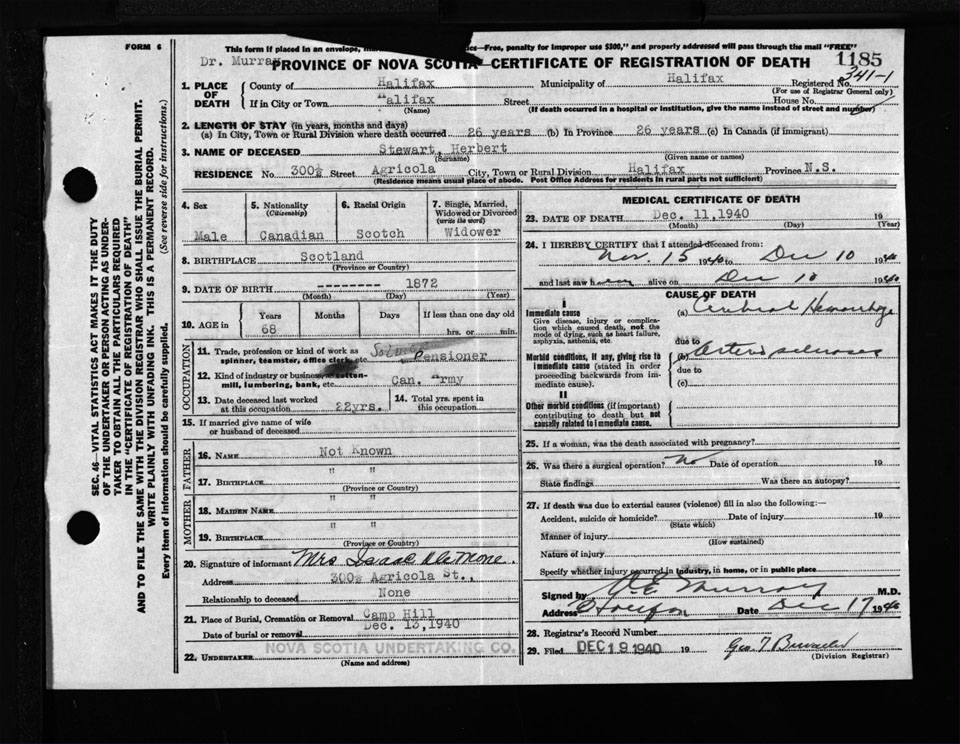 FORM 6
This form if placed in an envelope, —Free, penalty for improper use $300," and properly addressed will pass through the mail "FREE"
Dr. Murray
1185
PROVINCE OF NOVA SCOTIA—CERTIFICATE OF REGISTRATION OF DEATH
341-1
1. PLACE OF DEATH County of Halifax Municipality of Halifax Registered No.
(For use of Registrar General only)
If in City or Town Halifax Street House No.
(Name) (If death occurred in a hospital or institution, give the name instead of street and number)
2. LENGTH OF STAY (in years, months and days)
(a) In City, Town or Rural Division where death occurred 26 years (b) In Province 26 years (c) In Canada (if immigrant)
3. NAME OF DECEASED Stewart, Herbert
(Surname) (Given name or names)
RESIDENCE No. 300½ Street Agricola City, Town or Rural Division Halifax Province N.S.
(Residence means usual place of abode. Post Office Address for residents in rural parts not sufficient)
4. Sex 5. Nationality (Citizenship) 6. Racial Origin 7. Single, Married, Widowed or Divorced (write the word)
Male Canadian Scotch Widower
8. BIRTHPLACE Scotland
(Province or Country)
9. DATE OF BIRTH --------- 1872
(Month) (Day) (Year)
10. AGE in Years Months Days If less than one day old
68 hrs. or min.
OCCUPATION
11. Trade, profession or kind of work as spinner, teamster, office clerk, etc. Pensioner
12. Kind of industry or business, as cotton-mill, lumbering, bank, etc. Can. Army
13. Date deceased last worked at this occupation 22yrs. 14. Total yrs. spent in this occupation
15. If married give name of wife or husband of deceased
FATHER
16. NAME Not Known
17. BIRTHPLACE " "
(Province or Country)
MOTHER
18. MAIDEN NAME " "
19. BIRTHPLACE " "
(Province or Country)
20. Signature of informant Mrs Isaac DeMone.
Address 300½ Agricola St.,
Relationship to deceased None
21. Place of Burial, Cremation or Removal Camp Hill
Date of burial or removal Dec. 13,1940
22. UNDERTAKER NOVA SCOTIA UNDERTAKING CO.
(Name and address)
MEDICAL CERTIFICATE OF DEATH
23. DATE OF DEATH Dec. 11,1940 19
(Month) (Day) (Year)
24. I HEREBY CERTIFY that I attended deceased from:
Nov. 15 1940 to Dec 10 1940
and last saw h alive on Dec 10 1940
CAUSE OF DEATH
I
Immediate cause (a) Cerebral Hemorrhage
Give disease, injury or complication which caused death, not the mode of dying, such as heart failure, asphyxia, asthenia, etc.
due to
Morbid conditions, if any, giving rise to immediate cause (stated in order proceeding backwards from immediate cause). (b) Arterio sclerosis
due to
(c)
II
Other morbid conditions (if important) contributing to death but not causally related to immediate cause.
25. If a woman, was the death associated with pregnancy?
26. Was there a surgical operation? No Date of operation 19
State findings Was there an autopsy?
27. If death was due to external causes (violence) fill in also the following:—
Accident, suicide or homicide? Date of injury 19
(State which)
Manner of injury
(How sustained)
Nature of injury
Specify whether injury occurred in industry, in home, or in public place
Signed by A E Murray M.D.
Address Halifax Date Dec 17 1940
28. Registrar's Record Number
29. Filed DEC 19 1940 19 Geo. T
(Division Registrar)
SEC. 46—VITAL STATISTICS ACT MAKES IT THE DUTY
OF THE UNDERTAKER OR PERSON ACTING AS UNDERTAKER TO OBTAIN ALL THE PARTICULARS REQUIRED
IN THE "CERTIFICATE OF REGISTRATION OF DEATH"
AND TO FILE THE SAME WITH THE DIVISION REGISTRAR WHO SHALL ISSUE THE BURIAL PERMIT.
WRITE PLAINLY WITH UNFADING INK. THIS IS A PERMANENT RECORD.
Every item of information should be carefully supplied. (See reverse side for instructions.)